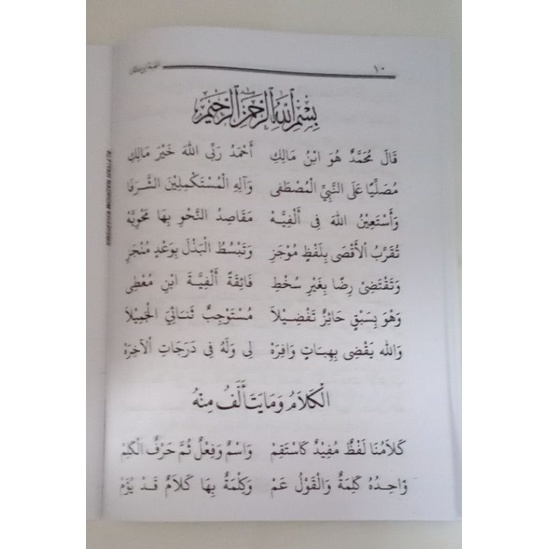 ١٠
بِسْمِ اللهِ الرَّحْمٰنِ الرَّحِيْمِ
قَالَ مُحَمَّدٌ هُوَ ابْنُ مَالِكِ أَحْمَدُ رَبِّي اللهَ خَيْرَ مَالِكِ
مُصَلِّيًا عَلَى النَّبِيِّ الْمُصْطَفَى وَآلِهِ الْمُسْتَكْمِلِيْنَ الشَّرَفَا
وَأَسْتَعِيْنُ اللهَ فِى أَلْفِيَّهْ مَقَاصِدُ النَّحْوِ بِهَا مَحْوِيَّهْ
تُقَرِّبُ الْأَقْصَى بِلَفْظٍ مُوْجَزِ وَتَبْسُطُ الْبَذْلَ بِوَعْدٍ مُنْجَزِ
وَتَقْتَضِى رِضًا بِغَيْرِ سُخْطِ فَائِقَةً أَلْفِيَّةَ ابْنِ مُعْطِى
وَهْوَ بِسَبْقٍ حَائِزٌ تَفْضِيْلًا مُسْتَوْجِبٌ ثَنَائِيَ الْجَمِيْلَا
وَالله يَقْضِى بِهِبَاتٍ وَافِرَهْ لِى وَلَهُ فِى دَرَجَاتِ الْآخِرَهْ
الْكَلَامُ وَمَا يَتَأَلَّفُ مِنْهُ
كَلَامُنَا لَفْظٌ مُفِيْدٌ كَاسْتَقِمْ وَاسْمٌ وَفِعْلٌ ثُمَّ حَرْفٌ الْكَلِمْ
وَاحِدُهُ كَلِمَةٌ وَالْقَوْلُ عَمْ وَكِلْمَةٌ بِهَا كَلَامٌ قَدْ يُؤَمْ